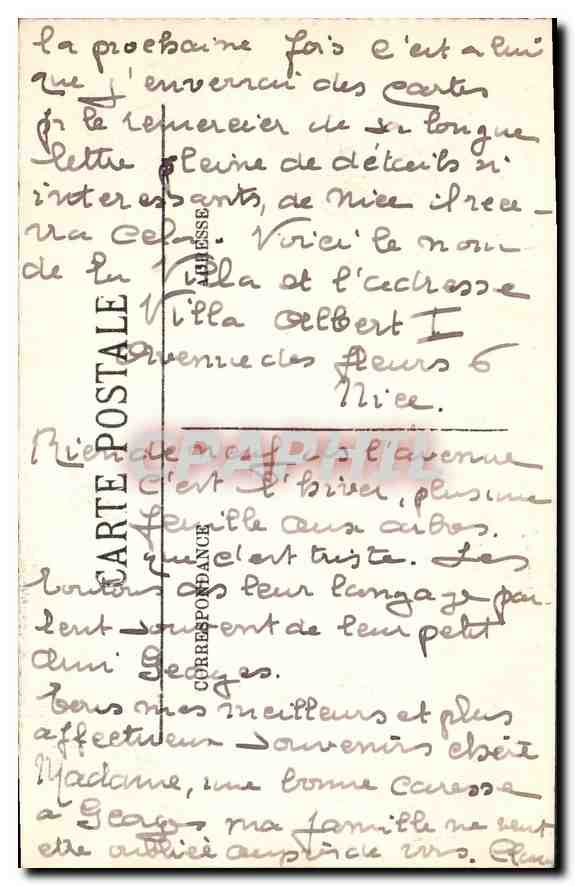 la prochaine fois c'est a lui
que j'enverrai des cartes
pr le remercier de sa longue
lettre pleine de détails si
interessants, de Nice il rece-
vra cela. Voici le nom
de la Villa et l'adresse
Villa Albert I
Avenue des fleurs 6
Nice.
Rien de neuf ds l'avenue
c'est l'hiver, plus une
feuille aux arbres.
que c'est triste. Les
toutous ds leur langage par-
lent souvent de leur petit
Ami Georges.
tous mes meilleurs et plus
affectueux souvenirs chère
Madame, une bonne caresse
a Georges ma famille ne veut
etre oubliée auprès de vs.
CARTE POSTALE
ADRESSE
CORRESPONDANCE
CPAPHIL